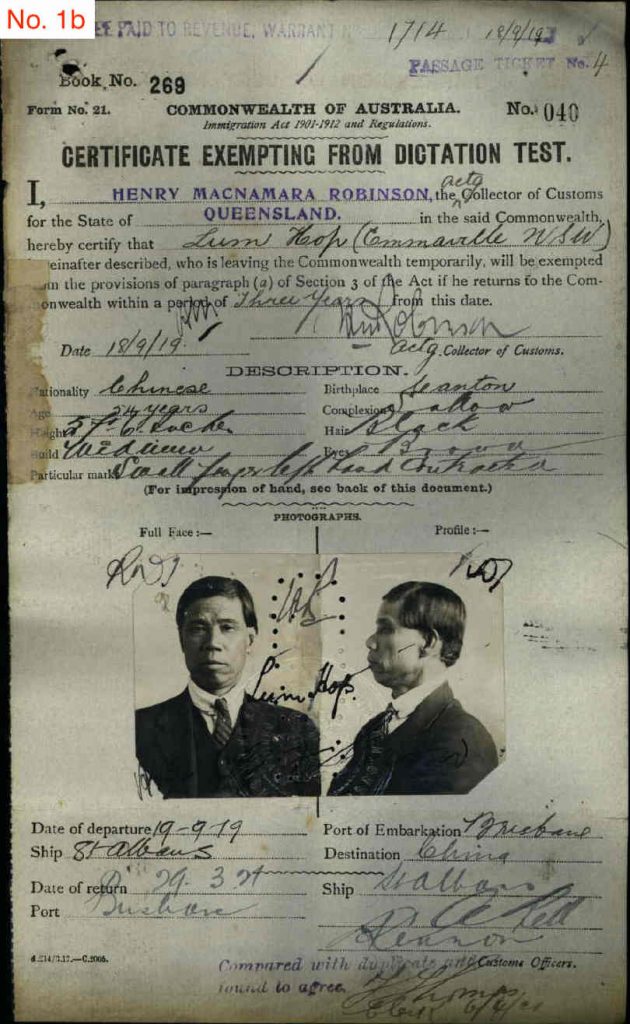 No. 1b
FEE PAID TO REVENUE, WARRANT 1714 18/9/19
PASSAGE TICKET No. 4
Book No. 269
Form No. 21. COMMONWEALTH OF AUSTRALIA. No. 040
Immigration Act 1901-1912 and Regulations.
CERTIFICATE EXEMPTING FROM DICTATION TEST.
I, HENRY MACNAMARA ROBINSON, the actg Collector of Customs
for the State of QUEENSLAND. in the said Commonwealth,
hereby certify that Lum Hop (Emmaville NSW)
hereinafter described, who is leaving the Commonwealth temporarily, will be exempted
from the provisions of paragraph (a) of Section 3 of the Act if he returns to the Com-
monwealth within a period of Three Years from this date.
HM Robinson
Date 18/9/19. actg Collector of Customs.
DESCRIPTION.
Nationality Chinese Birthplace Canton
Age 54 years Complexion Sallow
Height 5 ft 6 inches Hair Black
Build Medium Eyes Brown
Particular marks Small finger left hand contracted
(For impression of hand, see back of this document.)
PHOTOGRAPHS.
Full Face:— Profile:—
Lum Hop.
Date of departure 19-9-19 Port of Embarkation Brisbane
Ship St Albans Destination China
Date of return 29.3.21 Ship St Albans
Port Brisbane
Customs Officers.
Compared with duplicate and
found to agree.
Clerk 6/4/21